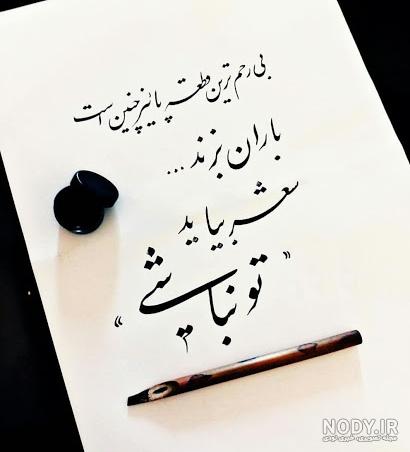 بی رحم ترین قطعه پائیز چنین است
باران بزند ...
شعر بیاید
"تو نباشی"
NODY.IR